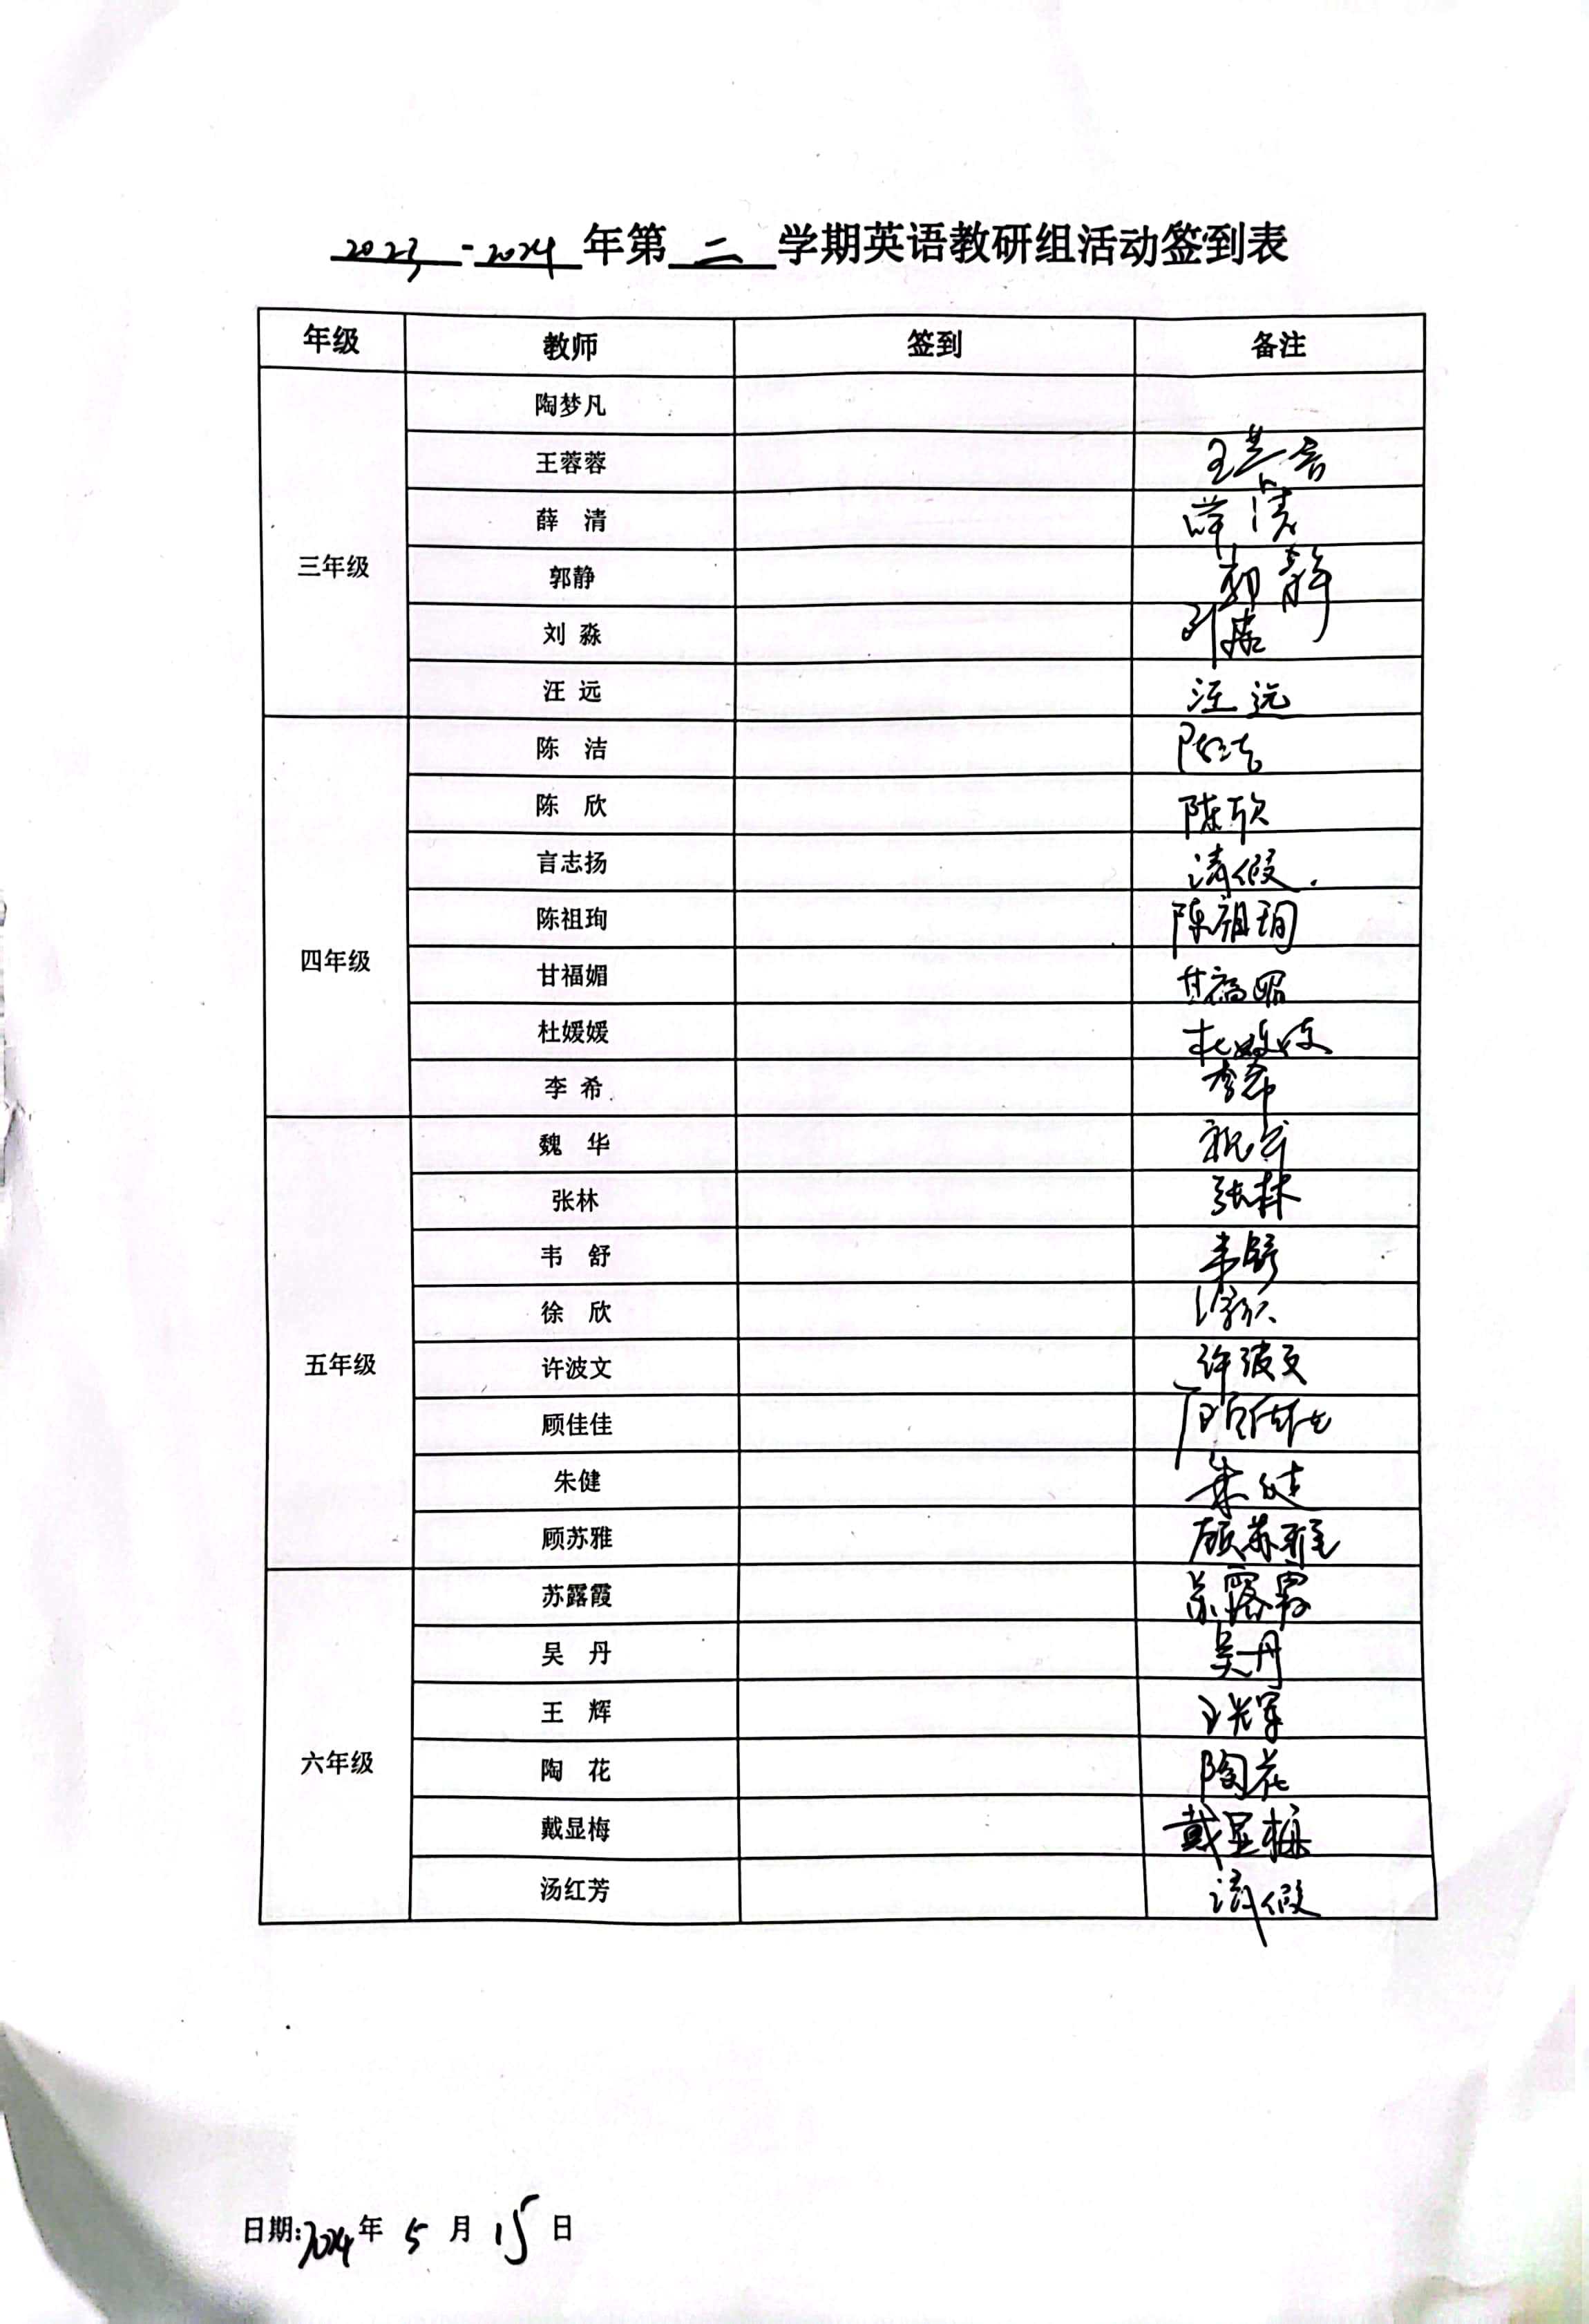 2023 - 2024 年第 二 学期英语教研组活动签到表
年级 教师 签到 备注
三年级
陶梦凡
王蓉蓉 王蓉蓉
薛 清 薛清
郭静 郭静
刘 淼 刘淼
汪 远 汪远
四年级
陈 洁 陈洁
陈 欣 陈欣
言志扬 请假.
陈祖珣 陈祖珣
甘福媚 甘福媚
杜媛媛 杜媛媛
李 希 李希
五年级
魏 华 魏华
张林 张林
韦 舒 韦舒
徐 欣 徐欣
许波文 许波文
顾佳佳 顾佳佳
朱健 朱健
顾苏雅 顾苏雅
六年级
苏露霞 苏露霞
吴 丹 吴丹
王 辉 王辉
陶 花 陶花
戴显梅 戴显梅
汤红芳 请假
日期:2024年 5 月 15 日